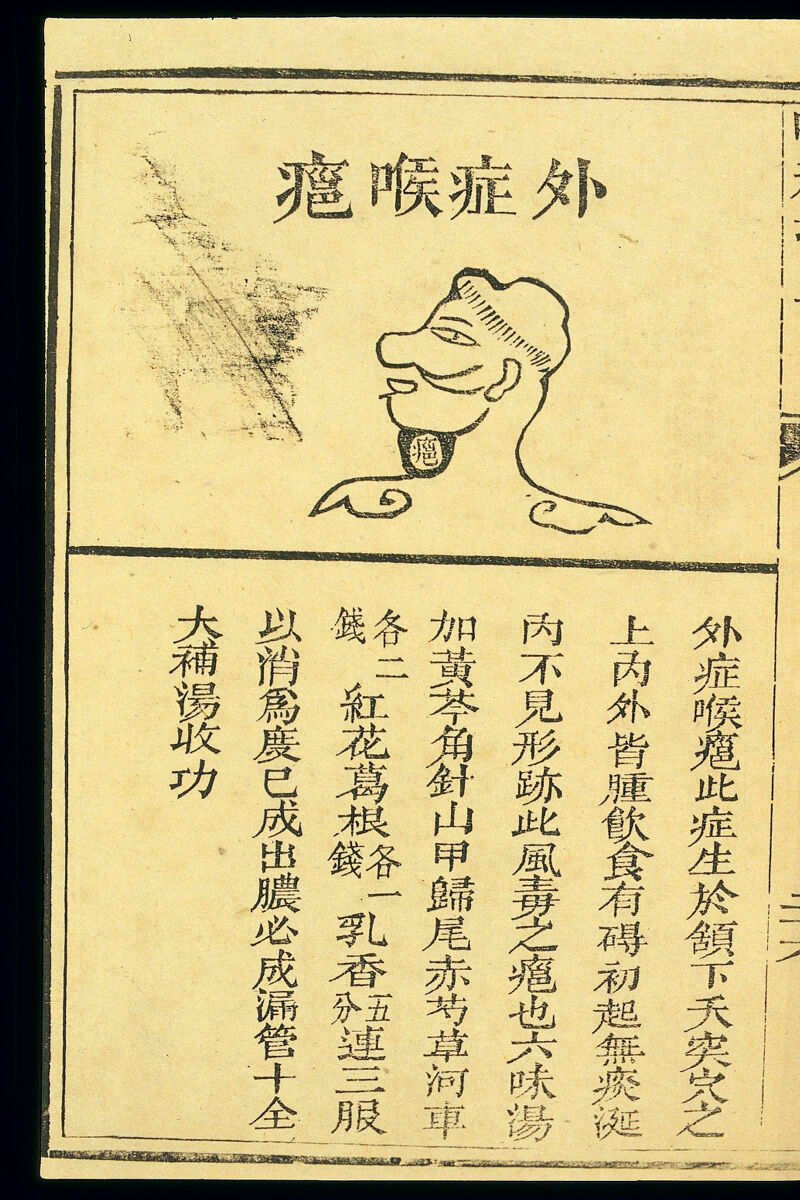 外症喉瘜
瘜
外症喉瘜此症生於頷下夭突穴之
上內外皆腫飲食有碍初起無痰涎
內不見形跡此風毒之瘜也六味湯
加黃芩角針山甲歸尾赤芍草河車
各二錢紅花葛根各一錢乳香五分連三服
以消為度已成出膿必成漏管十全
大補湯收功